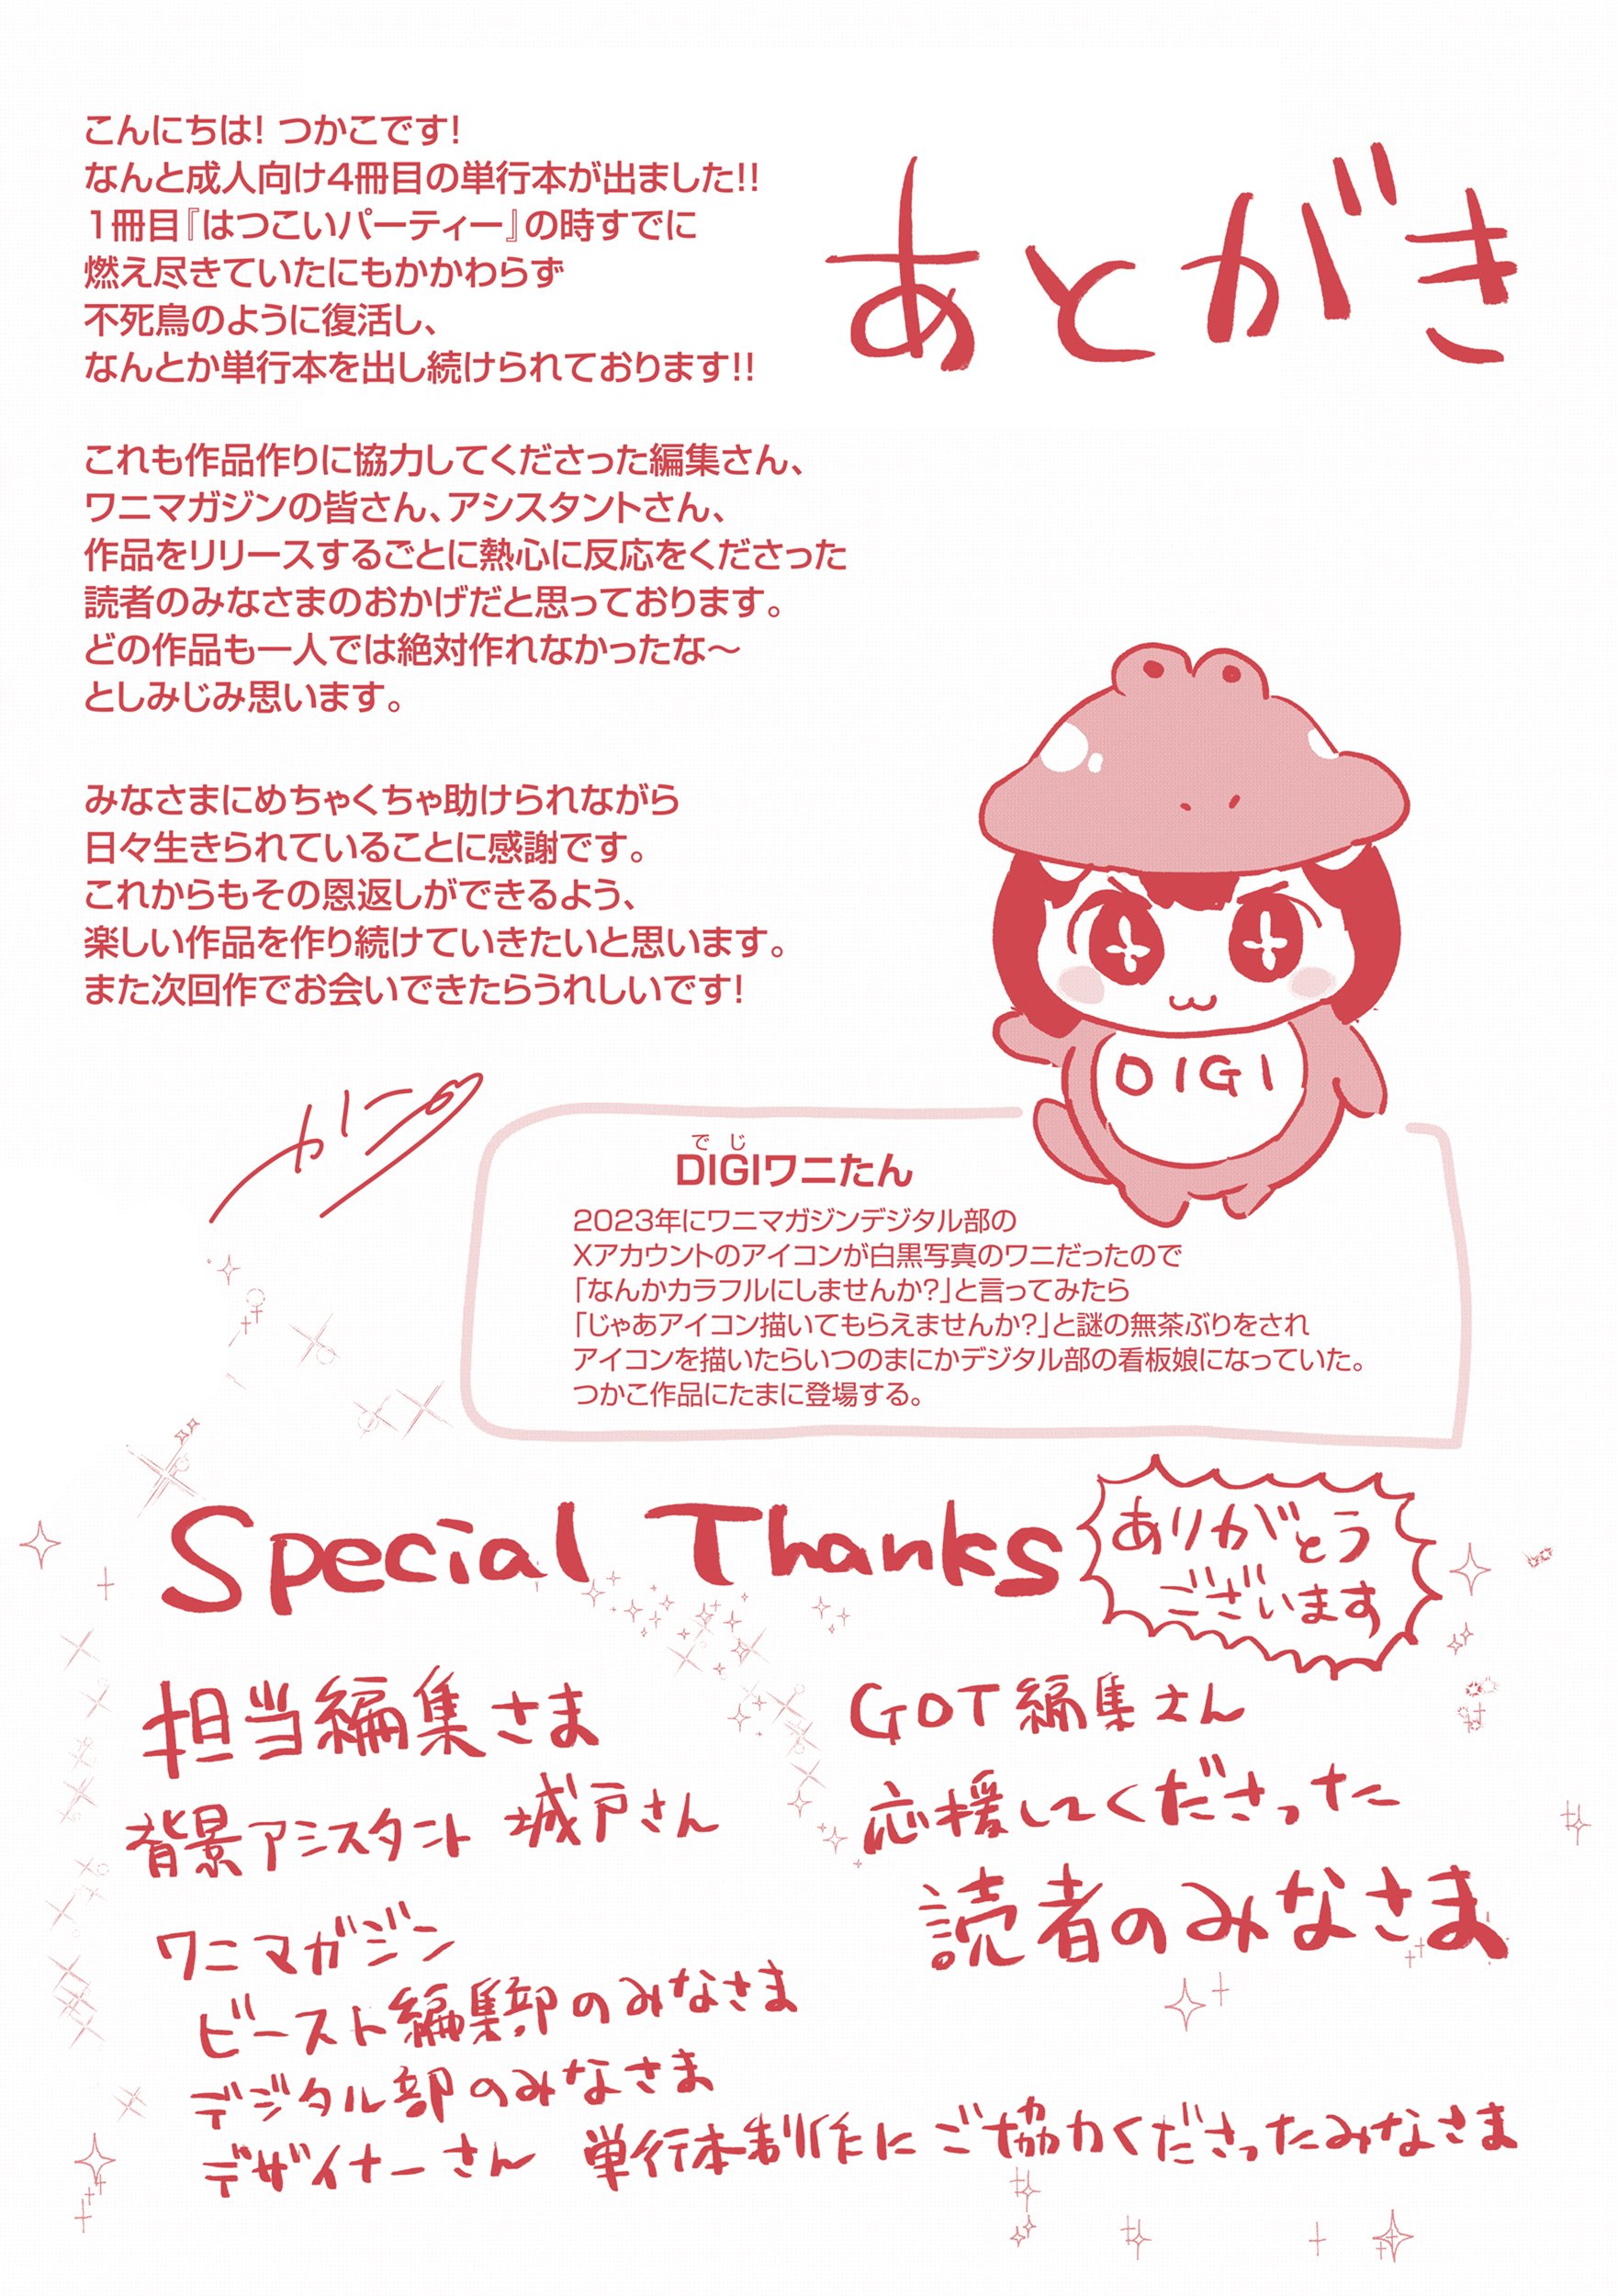 あとがき
こんにちは! つかこです!
なんと成人向け4冊目の単行本が出ました!!
1冊目『はつこいパーティー』の時すでに
燃え尽きていたにもかかわらず
不死鳥のように復活し、
なんとか単行本を出し続けられております!!
これも作品作りに協力してくださった編集さん、
ワニマガジンの皆さん、アシスタントさん、
作品をリリースするごとに熱心に反応をくださった
読者のみなさまのおかげだと思っております。
どの作品も一人では絶対作れなかったな～
としみじみ思います。
みなさまにめちゃくちゃ助けられながら
日々生きられていることに感謝です。
これからもその恩返しができるよう、
楽しい作品を作り続けていきたいと思います。
また次回作でお会いできたらうれしいです!
DIGI
でじ
DIGIワニたん
2023年にワニマガジンデジタル部の
Xアカウントのアイコンが白黒写真のワニだったので
「なんかカラフルにしませんか?」と言ってみたら
「じゃあアイコン描いてもらえませんか?」と謎の無茶ぶりをされ
アイコンを描いたらいつのまにかデジタル部の看板娘になっていた。
つかこ作品にたまに登場する。
Special Thanks
ありがとう
ございます
担当編集さま
背景アシスタント 城戸さん
ワニマガジン
ビースト編集部のみなさま
デジタル部のみなさま
デザイナーさん
GOT編集さん
応援してくださった
読者のみなさま
単行本制作にご協力くださったみなさま